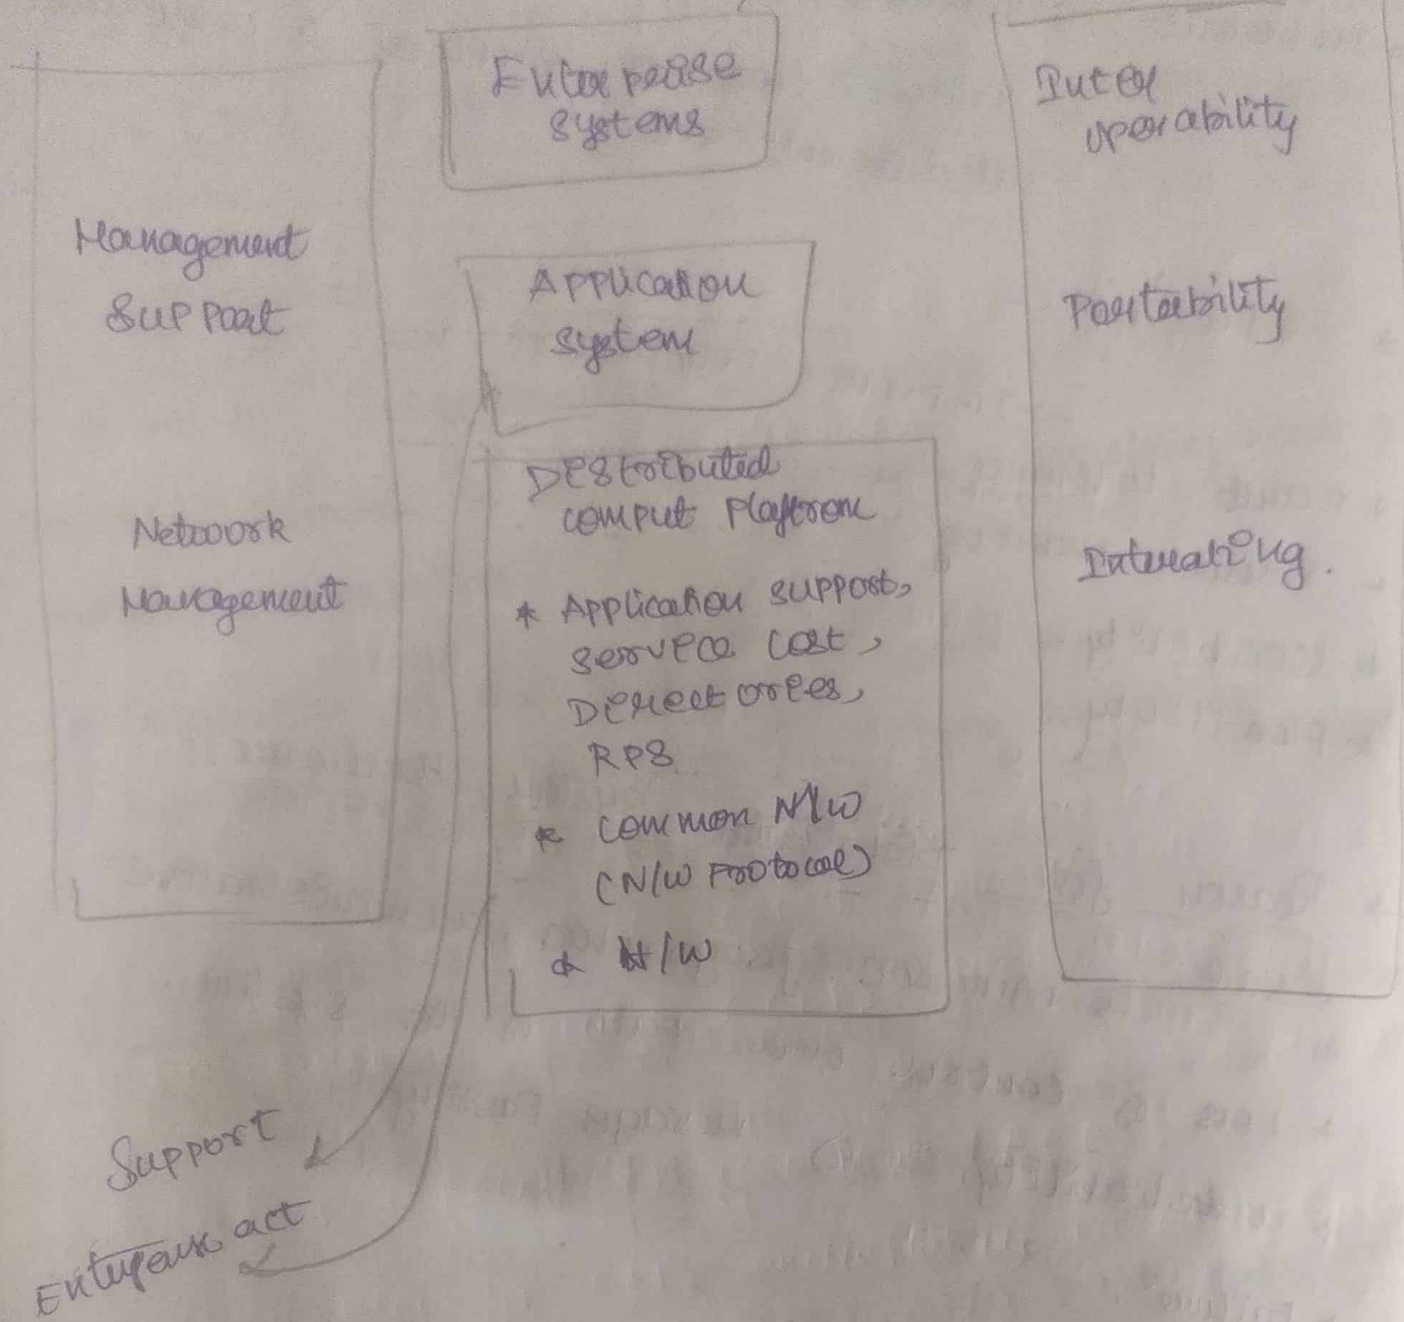 Management
Support
Network
Management
Enterprise
systems
Application
system
Distributed
comput Platfrom
* Application support,
service cost,
Directories,
RPS
* common N/W
(N/W Protocol)
* H/W
Inter
operability
Portability
Support
Enterprise act